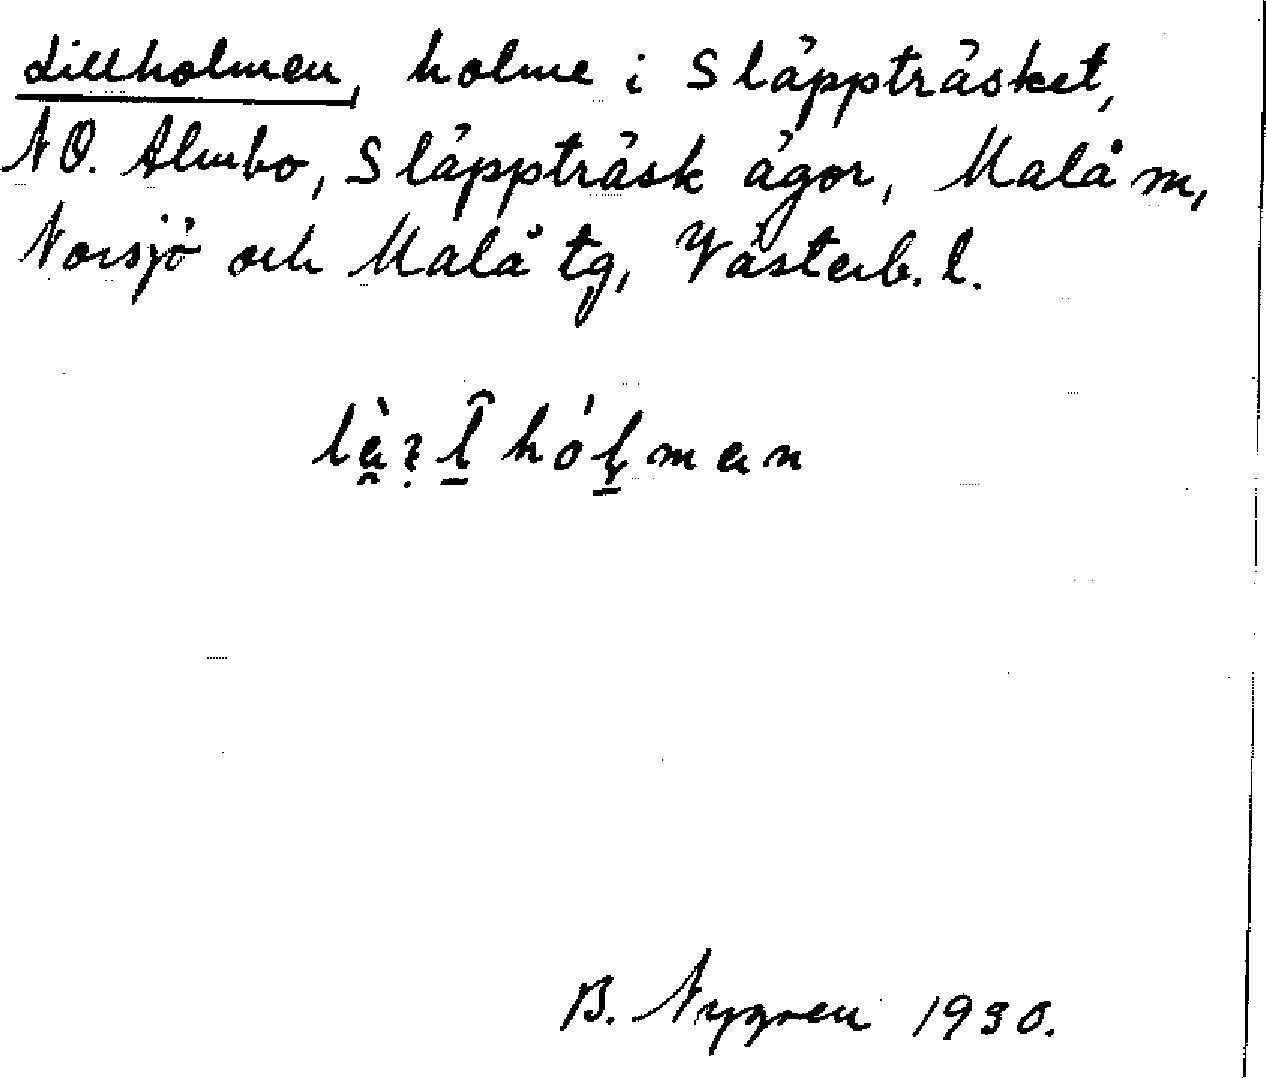 Lillholmen, holme i Släppträsket,
NO. Almbo, Släppträsk ägor, Malå m,
Norsjö och Malå tg, Västerb. l.
hólman
B. Nygren 1930.